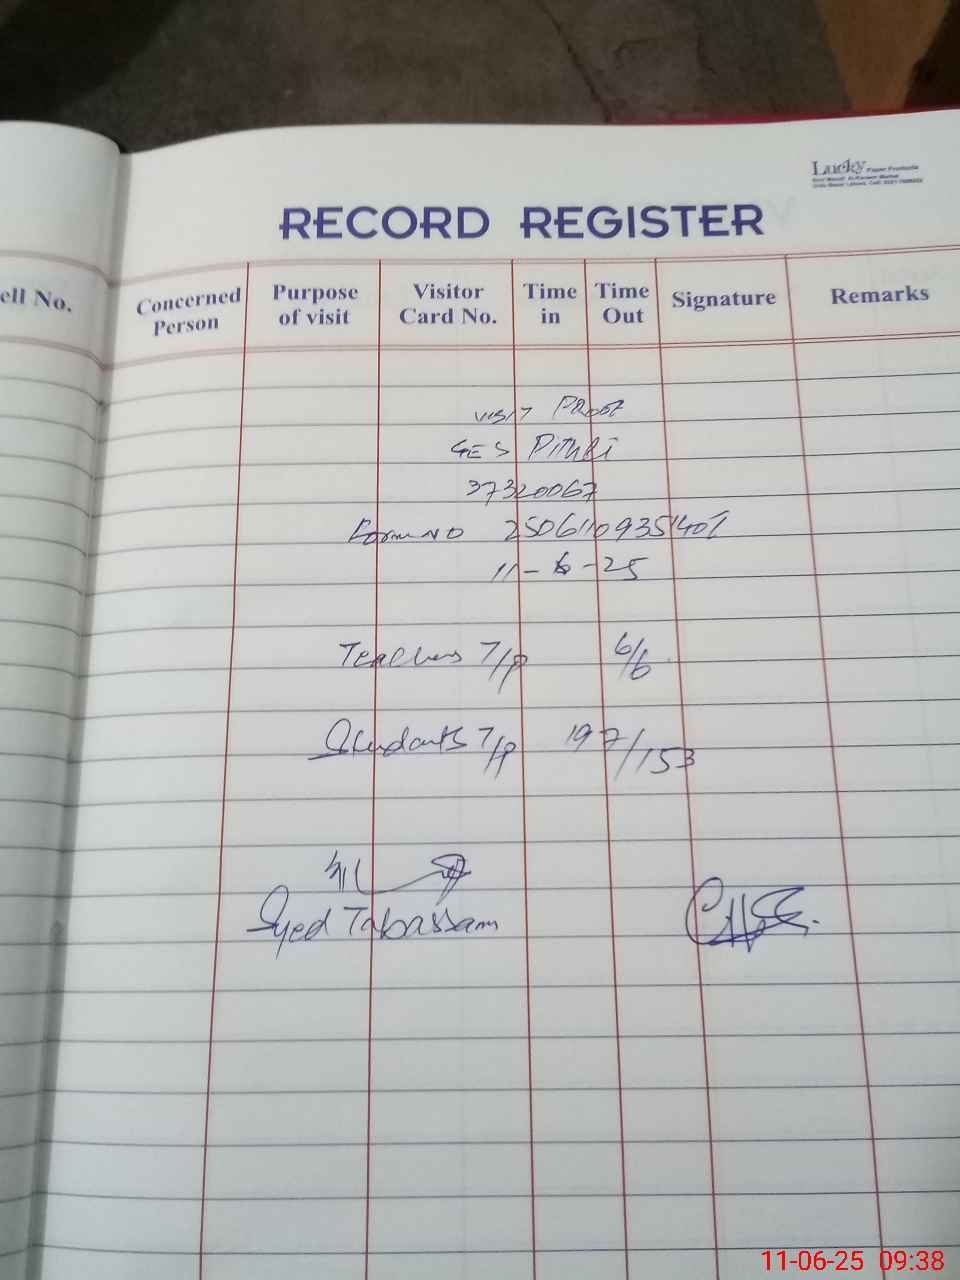 Lucky Paper Products
RECORD REGISTER
ell No.
Concerned Person
Purpose of visit
Visitor Card No.
Time in
Time Out
Signature
Remarks
visit Proof
GES Pithli
37320067
Form NO 25061109351401
11-6-25
Teachers T/P 6/6
Students T/P 197/153
Syed Tabassam
11-06-25 09:38